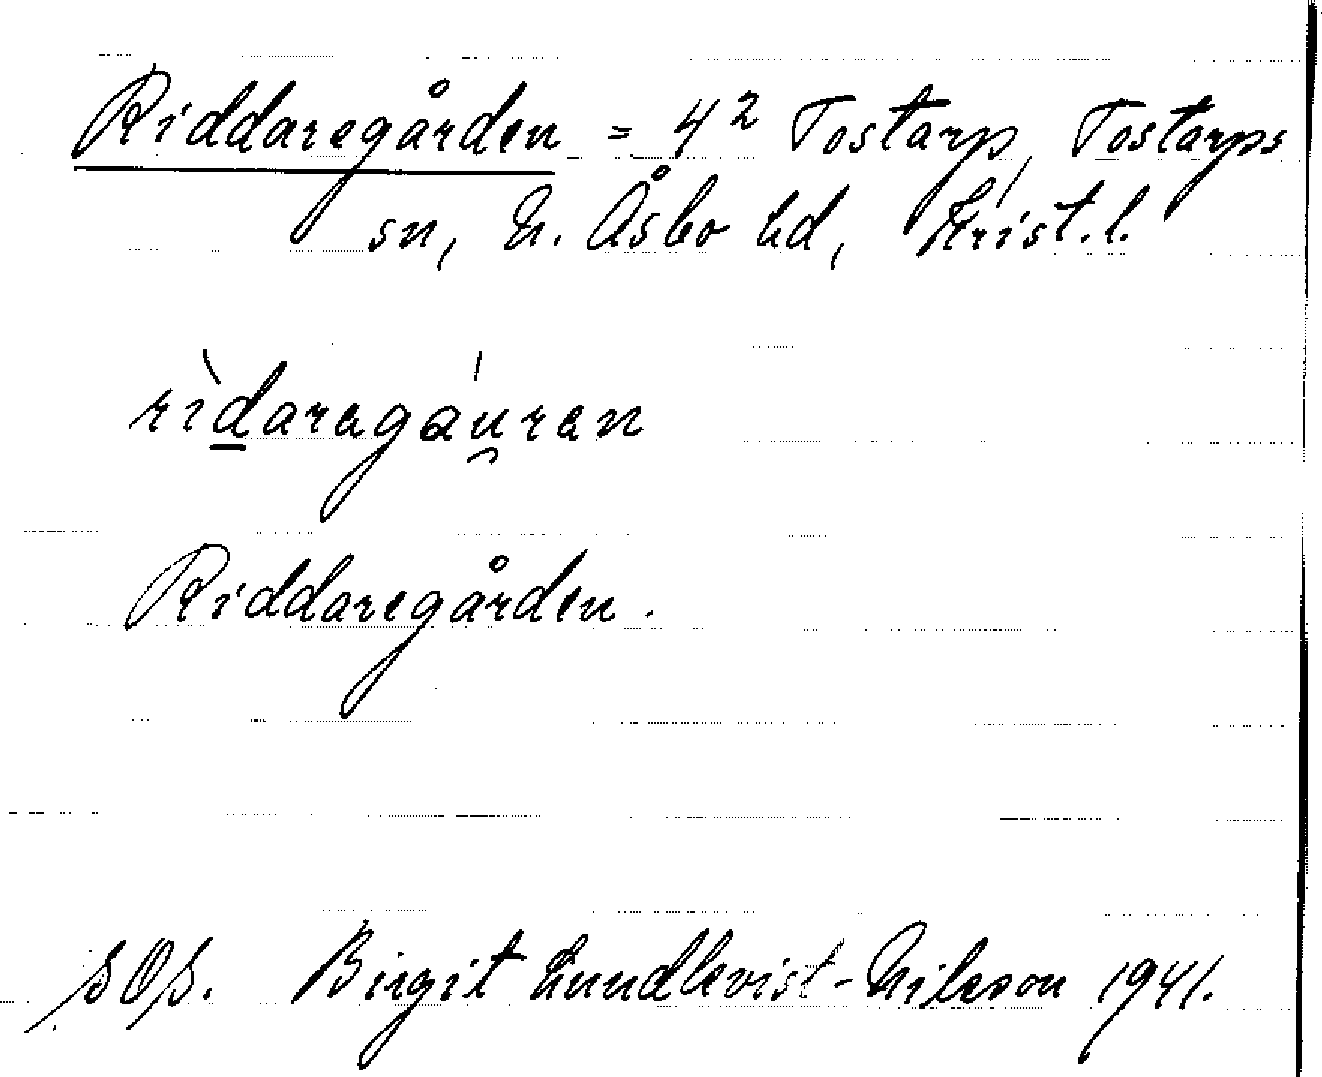 Riddaregården = 4² Tostarp, Tostarps
sn, N. Åsbo hd, Krist. l.
rìd̲aregáu̯ren
Riddaregården.
Birgit Lundkvist-Nilsson 1941.